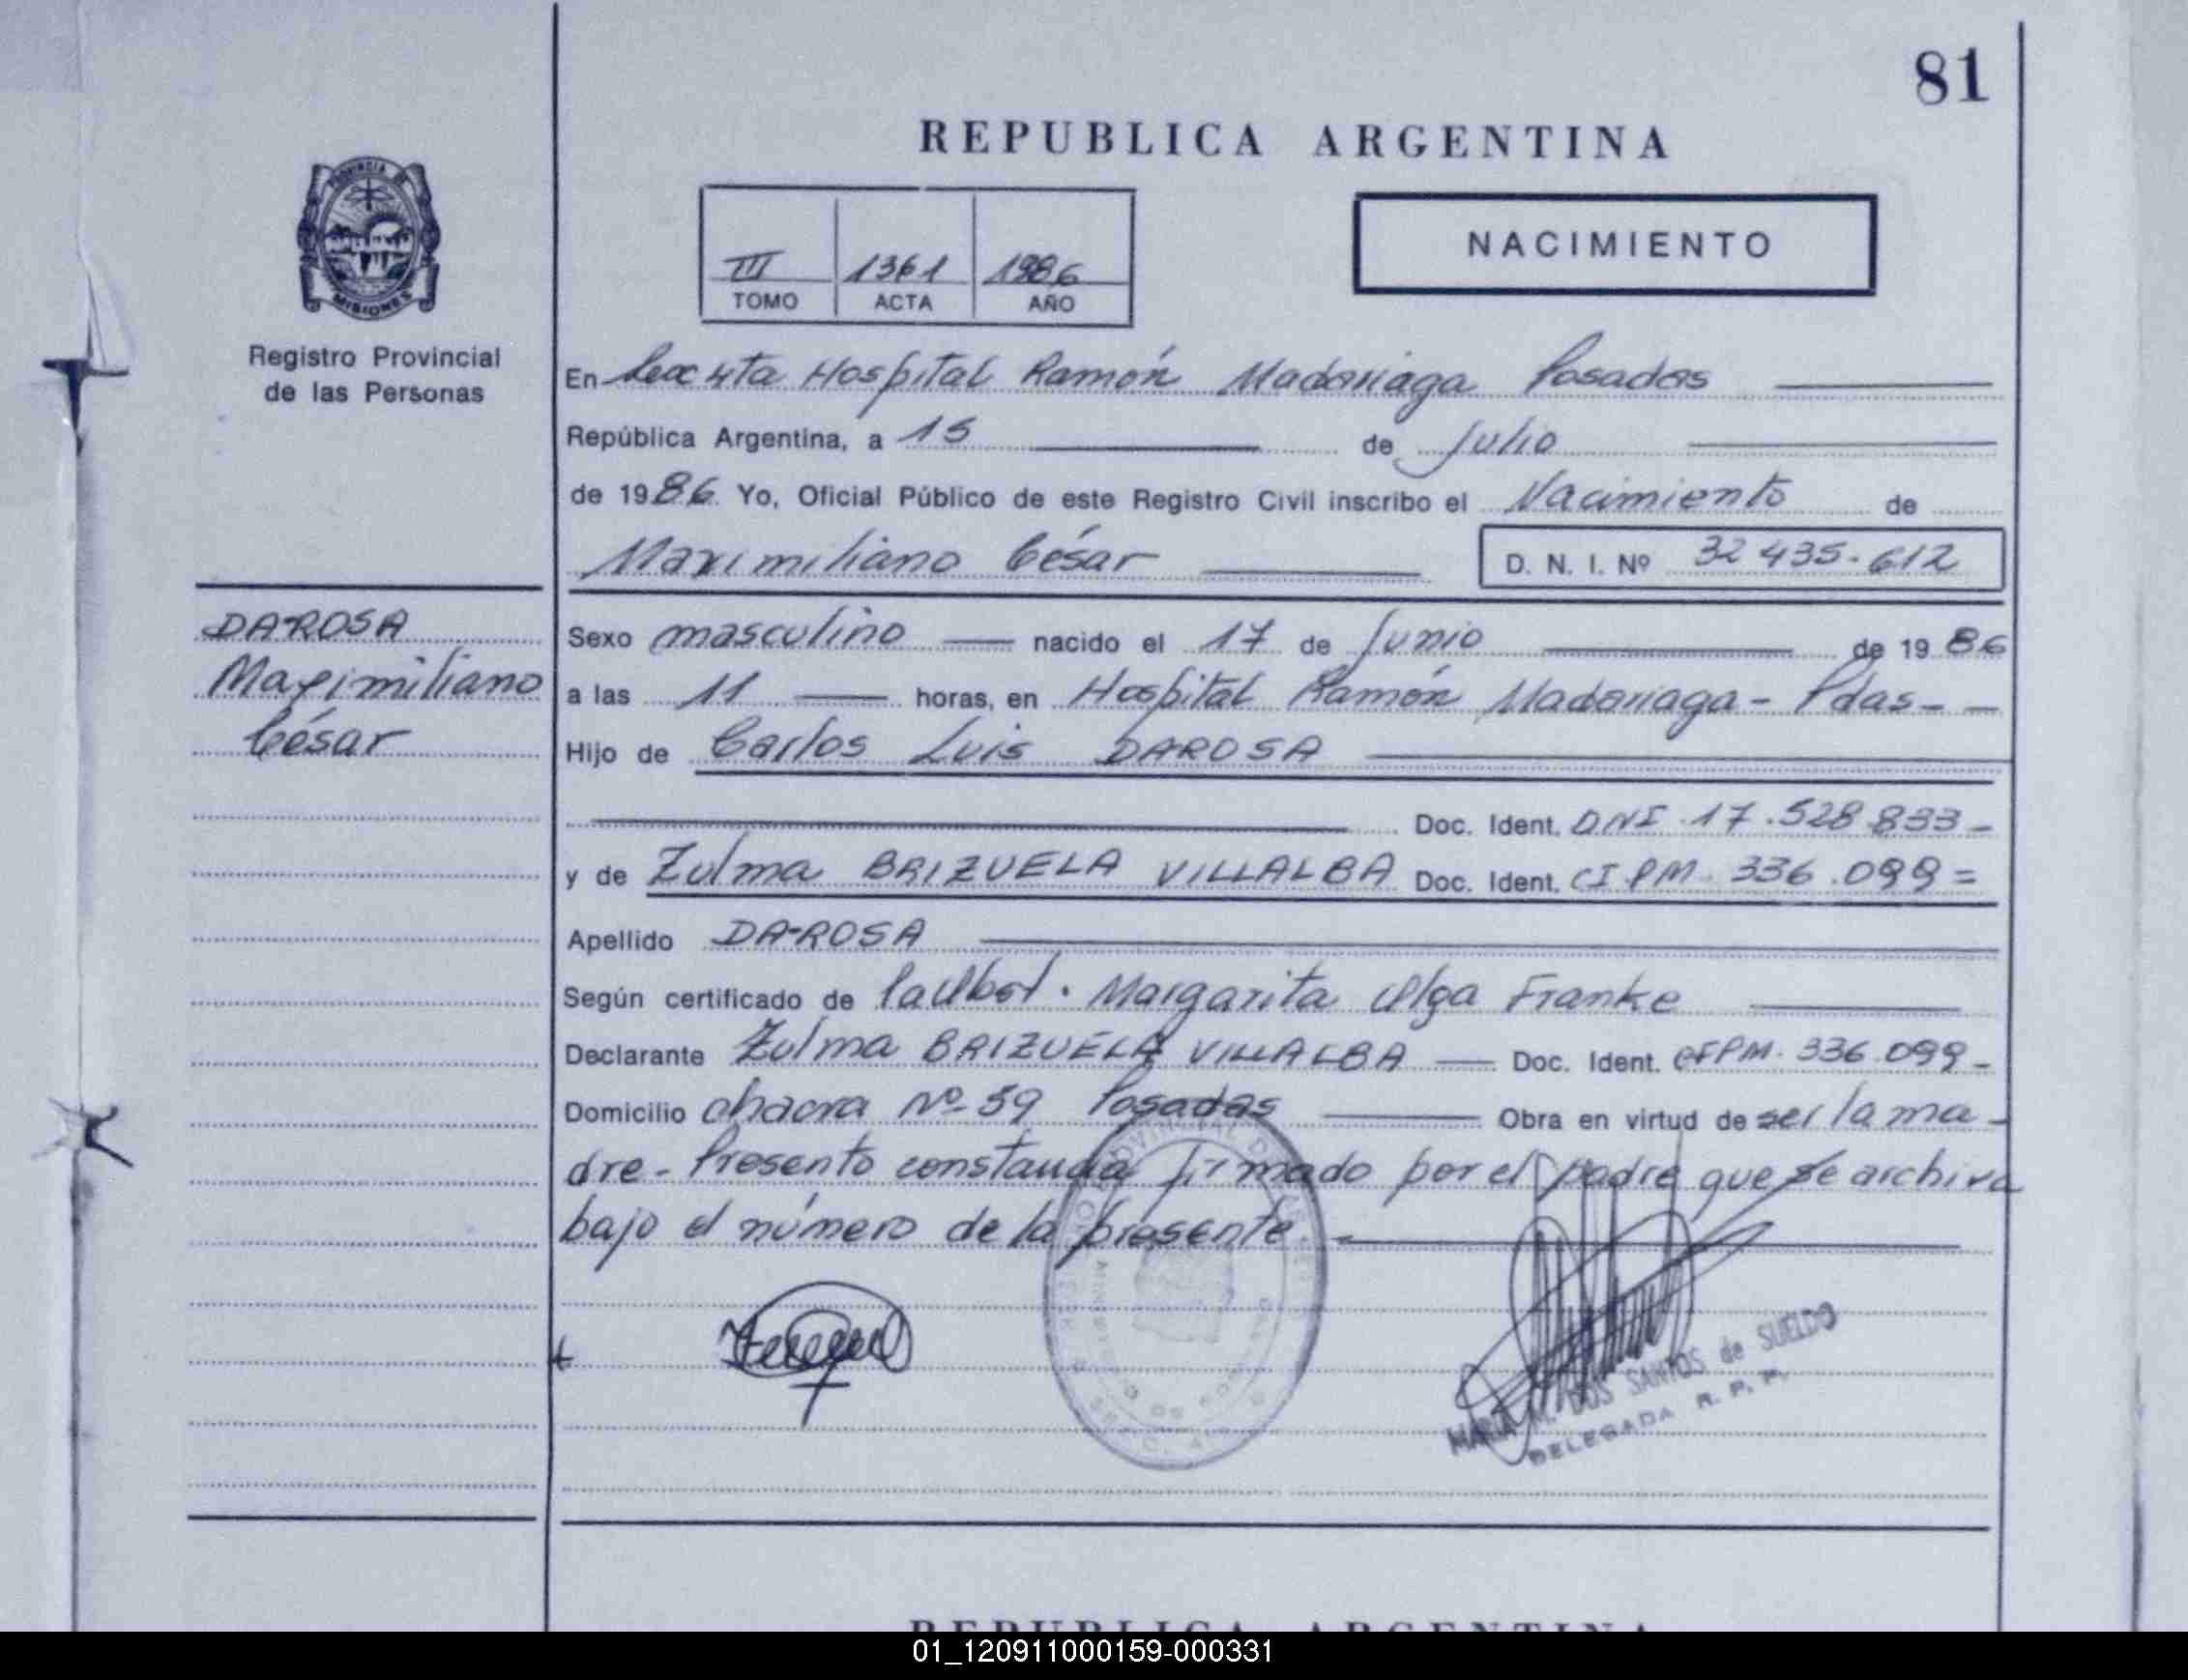 81
REPUBLICA ARGENTINA
PROVINCIA DE
MISIONES
Registro Provincial
de las Personas
III 1361 1986
TOMO ACTA AÑO
NACIMIENTO
En Hospital Ramón Madariaga Posadas
República Argentina, a 15 de Julio
de 1986. Yo, Oficial Público de este Registro Civil inscribo el Nacimiento de
Maximiliano César D. N. I. Nº 32 435.612
DA-ROSA
Maximiliano
César
Sexo masculino nacido el 17 de Junio de 1986
a las 11 horas, en Hospital Ramón Madariaga - Pdas - -
Hijo de Carlos Luis DAROSA
Doc. Ident. DNI 17.528 833 -
y de Zulma BRIZUELA VILLALBA Doc. Ident. CI.PM. 336.099 =
Apellido DA-ROSA
Según certificado de Margarita Olga Franke
Declarante Zulma BRIZUELA VILLALBA Doc. Ident. CIPM. 336.099 -
Domicilio chacra Nº 59 Posadas Obra en virtud de ser la ma-
dre - Presento constancia firmado por el padre que se archiva
bajo el número de la presente
MARIA M. DOS SANTOS de SUELDO
DELEGADA R. P. P.
REPUBLICA ARGENTINA
01_120911000159-000331